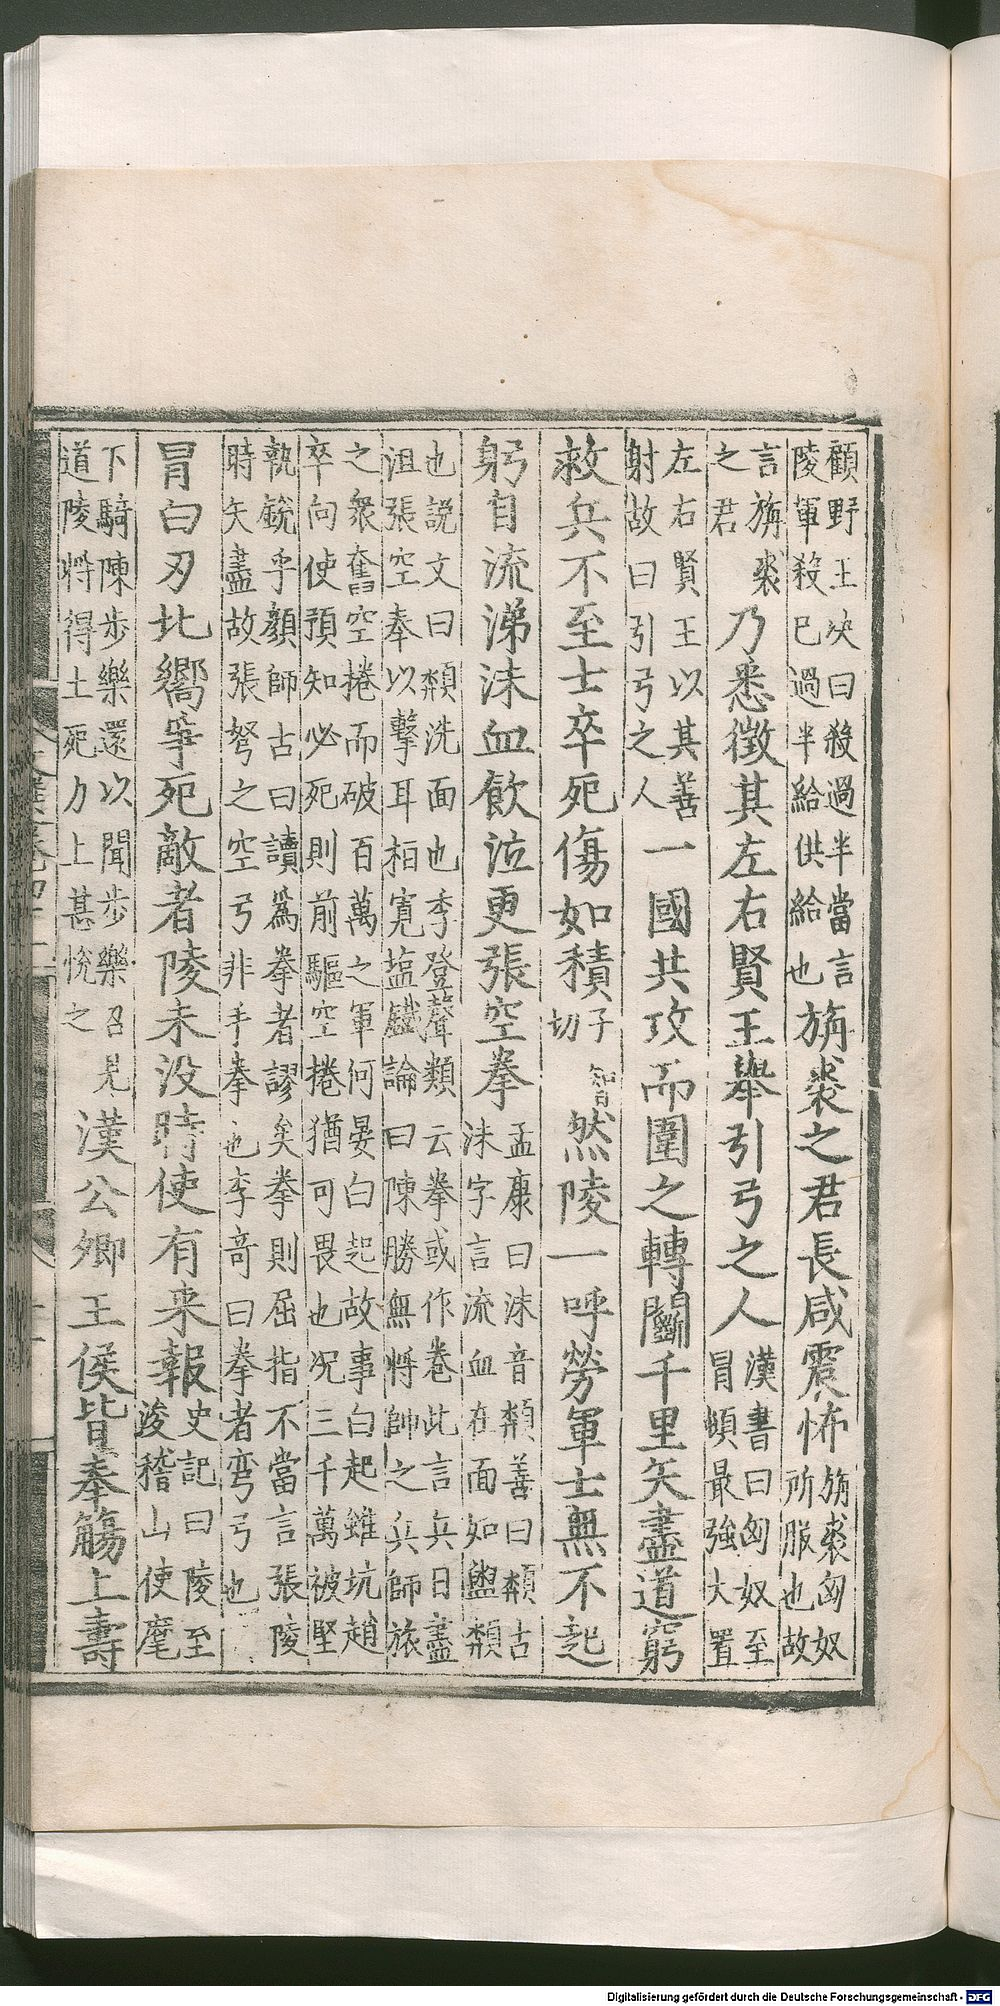 顧野王决曰殺過半當言陵軍殺已過半給供給也旃裘之君長咸震怖旃裘匈奴所服也故
言旃裘之君乃悉徵其左右賢王舉引弓之人漢書曰匈奴至冒頓最強大置
左右賢王以其善射故曰引弓之人一國共攻而圍之轉鬭千里矢盡道窮
救兵不至士卒死傷如積子智切然陵一呼勞軍士無不起
躬自流涕沬血飲泣更張空拳孟康曰沬音頮善曰頮古沬字言流血在面如盥頮
也説文曰頮洗面也李登聲類云拳或作巻此言兵日盡沮張空拳以擊耳桓寛塩鐵論曰陳勝無將帥之兵師旅
之衆奮空捲而破百萬之軍何晏白起故事白起雖坑趙卒向使預知必死則前驅空捲猶可畏也况三千萬被堅
執銳乎顔師古曰讀爲拳者謬矣拳則屈指不當言張陵時矢盡故張弩之空弓非手拳也李竒曰拳者弯弓也
冒白刃北嚮爭死敵者陵未没時使有来報史記曰陵至浚稽山使麾
下騎陳步樂還以聞步樂召見道陵將得士死力上甚悅之漢公卿王侯皆奉觴上壽
Digitalisierung gefördert durch die Deutsche Forschungsgemeinschaft - DFG